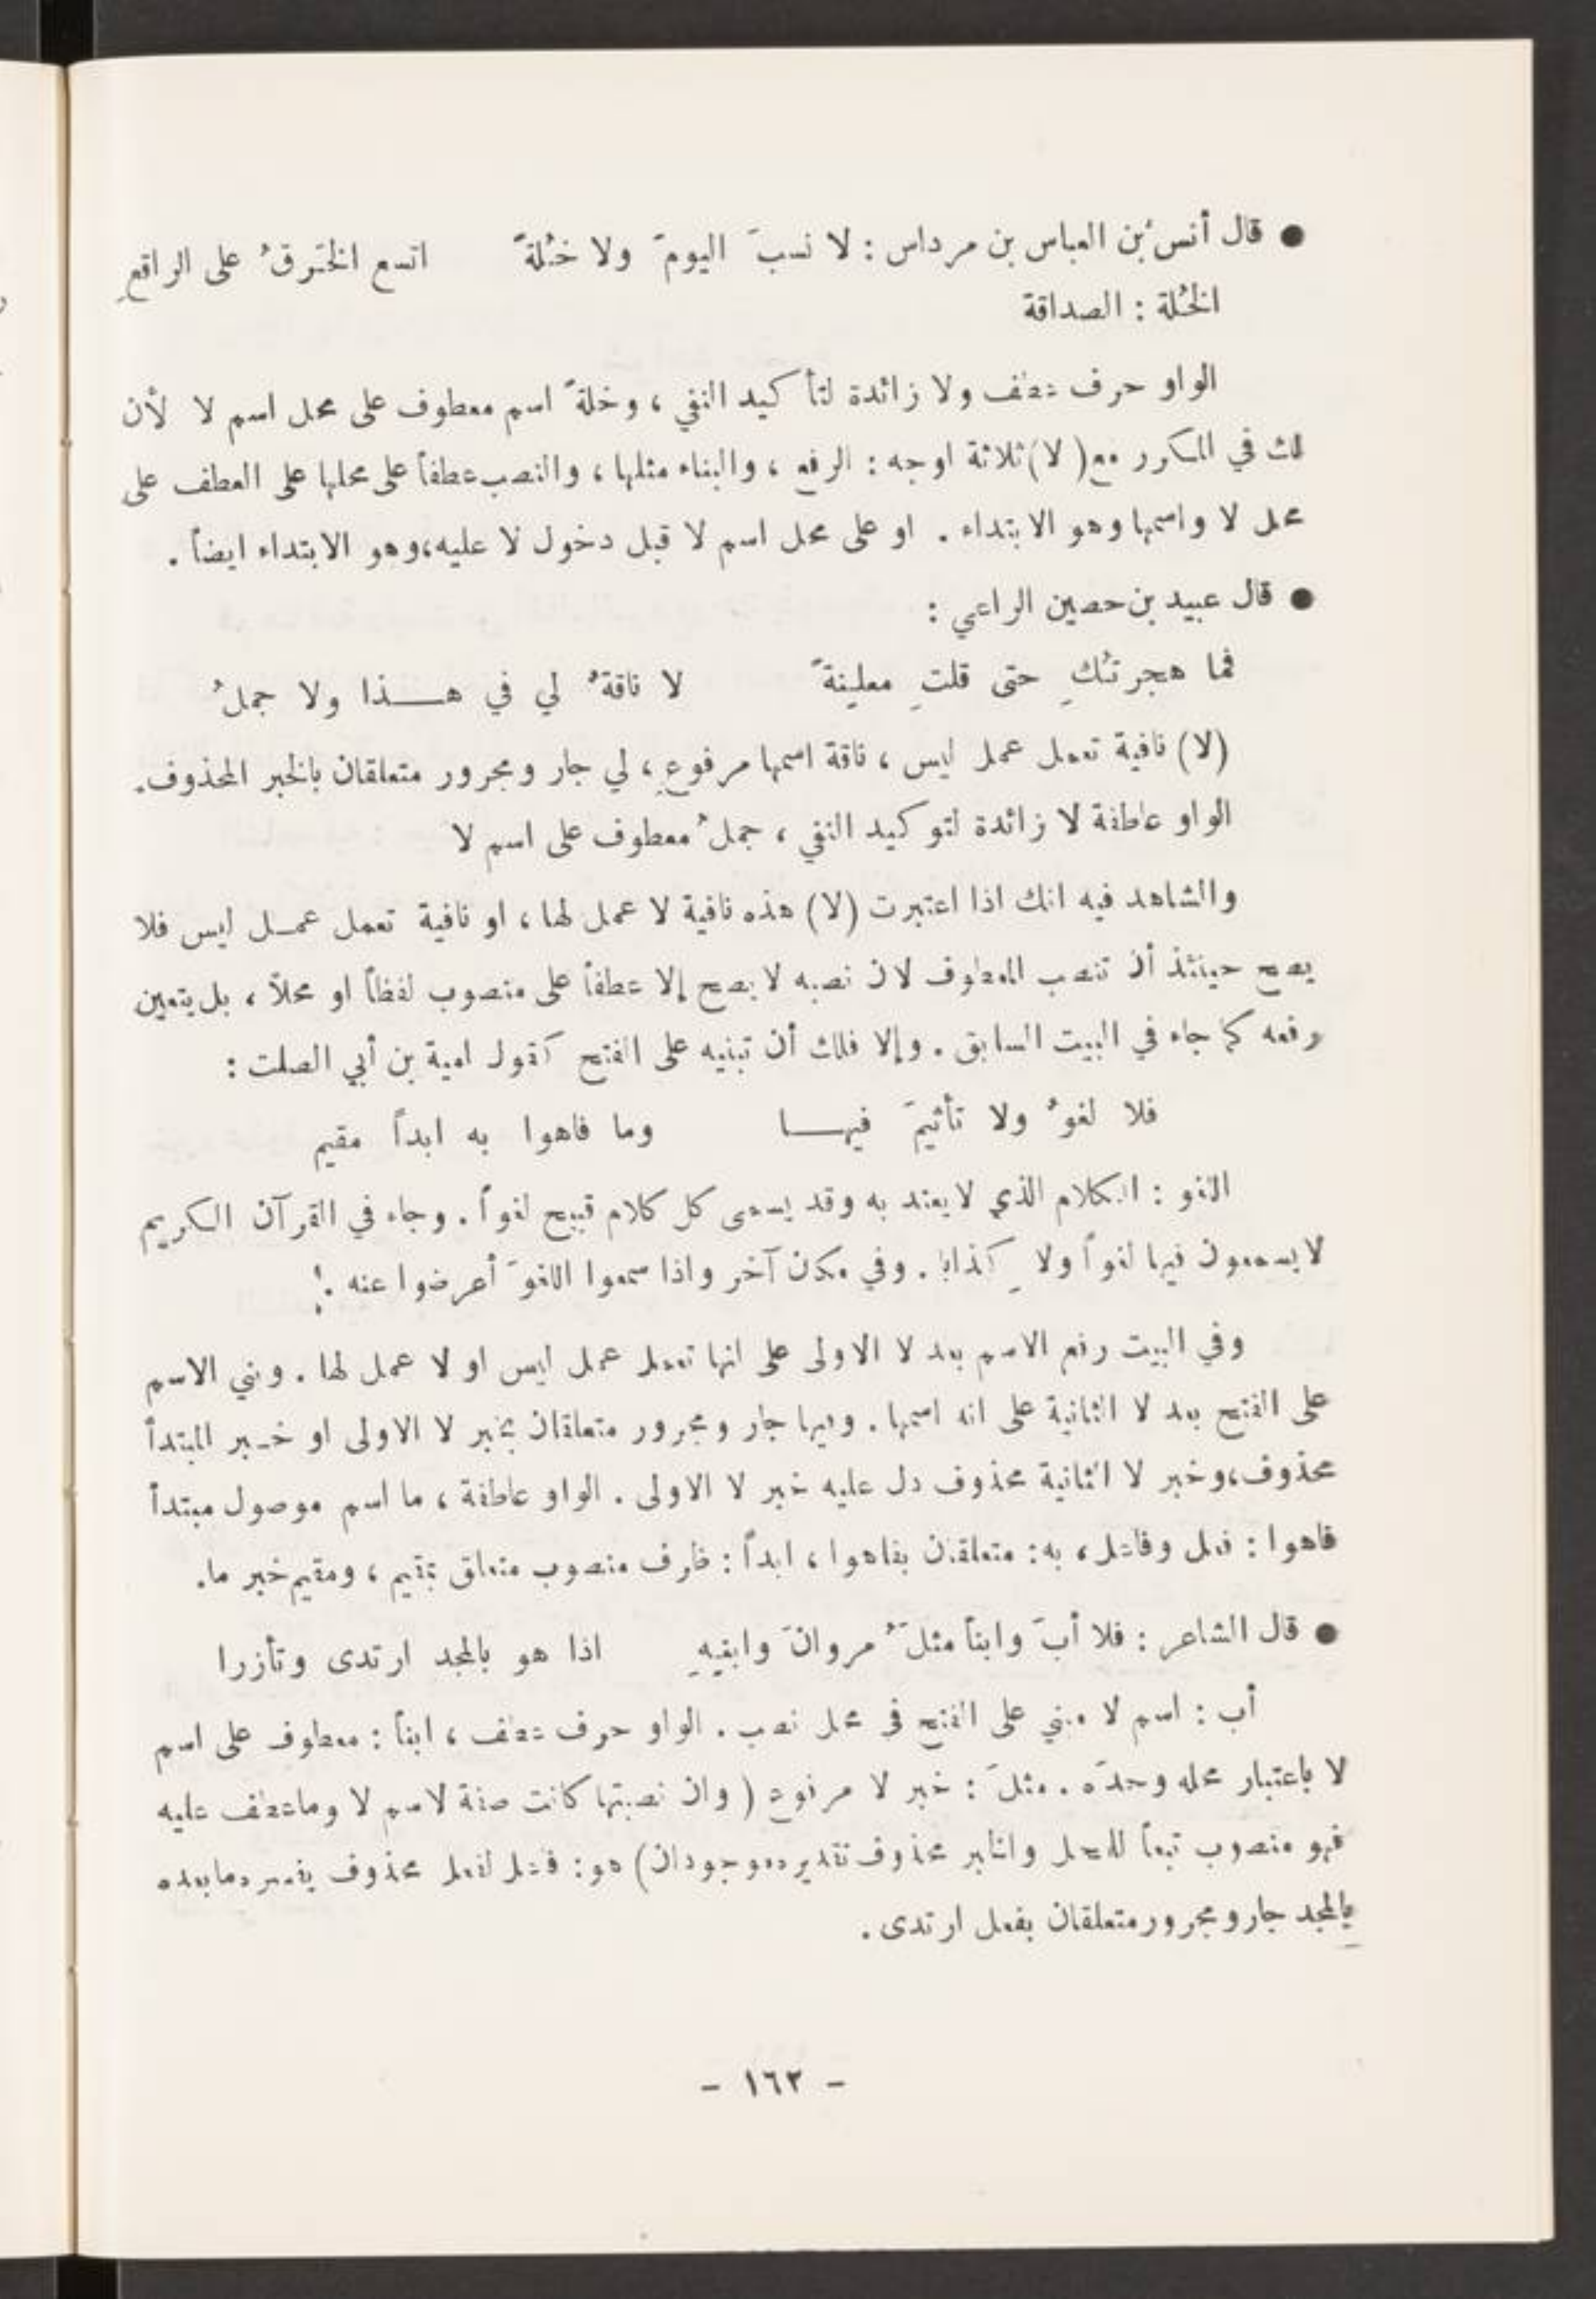 ● قال أنسُ بن العباس بن مرداس : لا نسبَ اليومَ ولا خُلةً اتسع الخَرقُ على الراقعِ
الخُلة : الصداقة
الواو حرف عطف ولا زائدة لتأكيد النفي ، وخلةً اسم معطوف على محل اسم لا لأن
لك في المكرر مع ( لا ) ثلاثة اوجه : الرفع ، والبناء مثلها ، والنصب عطفاً على محلها على العطف على
محل لا واسمها وهو الابتداء . او على محل اسم لا قبل دخول لا عليه،وهو الابتداء ايضاً .
● قال عبيد بن حصين الراعي :
فما هجرتُكِ حتى قلتِ معلِنةً لا ناقةٌ لي في هــــذا ولا جملُ
(لا) نافية تعمل عمل ليس ، ناقة اسمها مرفوع ، لي جار ومجرور متعلقان بالخبر المحذوف.
الواو عاطفة لا زائدة لتوكيد النفي ، جملُ معطوف على اسم لا
والشاهد فيه انك اذا اعتبرت (لا) هذه نافية لا عمل لها ، او نافية تعمل عمــل ليس فلا
يصح حينئذ أن تنصب المعطوف لان نصبه لا يصح إلا عطفاً على منصوب لفظاً او محلاً ، بل يتعين
رفعه كما جاء في البيت السابق . وإلا فلك أن تبنيه على الفتح كقول امية بن أبي الصلت :
فلا لغوٌ ولا تأثيمَ فيهــــا وما فاهوا به ابداً مقيم
اللغو : الكلام الذي لا يعتد به وقد يسمى كل كلام قبيح لغواً . وجاء في القرآن الكريم
لا يسمعون فيها لغواً ولا كِذابا . وفي مكان آخر واذا سمعوا اللغوَ أعرضوا عنه .
وفي البيت رفع الاسم بعد لا الاولى على انها تعمل عمل ليس او لا عمل لها . وبني الاسم
على الفتح بعد لا الثانية على انه اسمها . وفيها جار ومجرور متعلقان بخبر لا الاولى او خــبر المبتدأ
محذوف،وخبر لا الثانية محذوف دل عليه خبر لا الاولى . الواو عاطفة ، ما اسم موصول مبتدأ
فاهوا : فعل وفاعل ، به : متعلقان بفاهوا ، ابداً : ظرف منصوب متعلق بمقيم ، ومقيم خبر ما.
● قال الشاعر : فلا أبَ وابناً مثلَُ مروانَ وابنِهِ اذا هو بالمجد ارتدى وتأزرا
أب : اسم لا مبني على الفتح في محل نصب . الواو حرف عطف ، ابناً : معطوف على اسم
لا باعتبار محله وحدَه . مثلَ : خبر لا مرفوع ( وان نصبتها كانت صفة لاسم لا وما عطف عليه
فهو منصوب تبعاً للمحل والخبر محذوف تقديره موجودان) هو : فاعل لفعل محذوف يفسره ما بعده
بالمجد جار ومجرور متعلقان بفعل ارتدى .
- ١٦٢ -